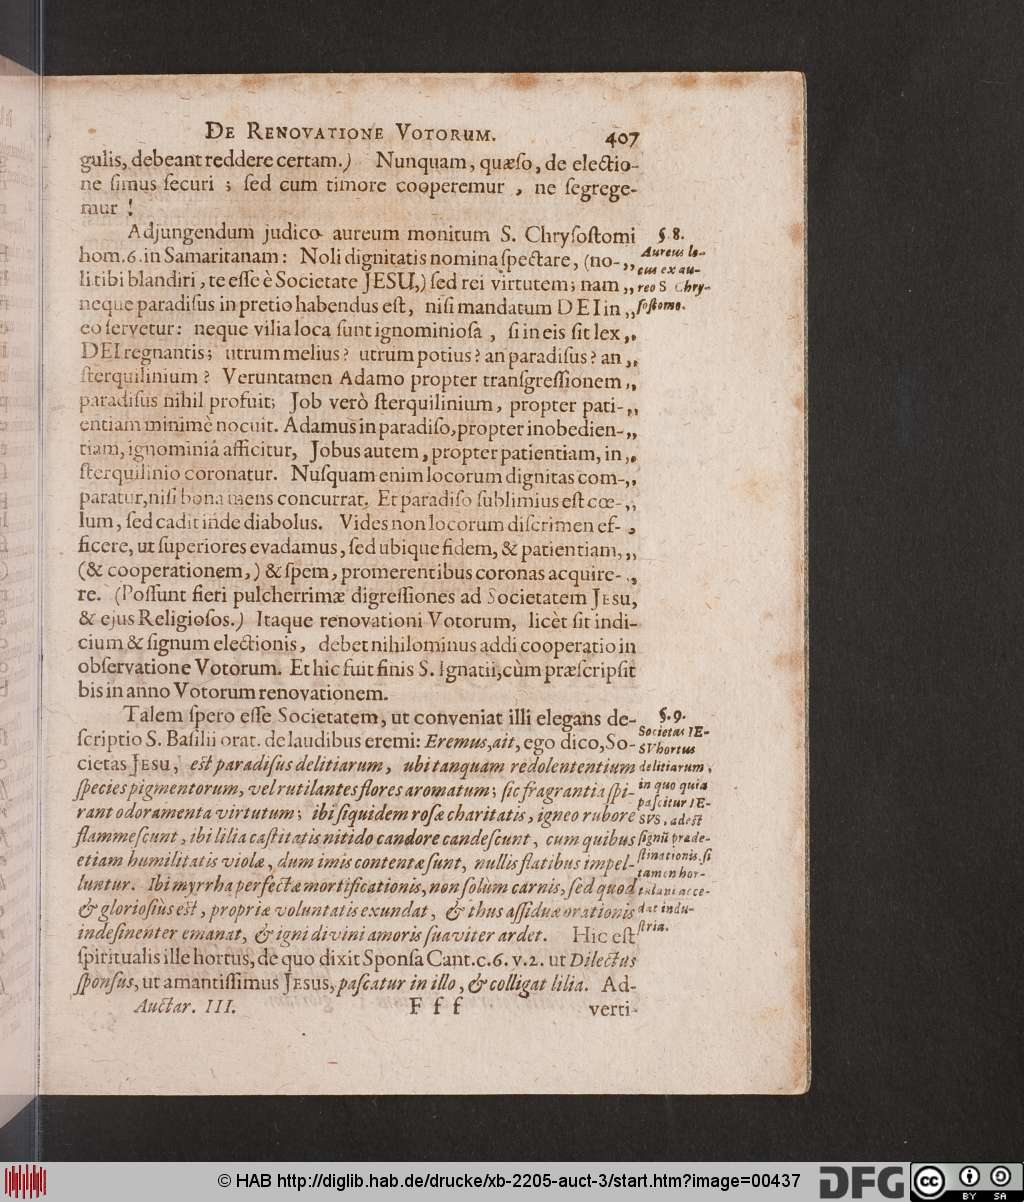 DE RENOVATIONE VOTORUM. 407
gulis, debeant reddere certam.) Nunquam, quæſo, de electio-
ne ſimus ſecuri ; ſed cum timore cooperemur , ne ſegrege-
mur !
Adjungendum judico aureum monitum S. Chryſoſtomi
hom. 6. in Samaritanam : Noli dignitatis nomina ſpectare, (no- ,,
li tibi blandiri , te eſſe è Societate JESU,) ſed rei virtutem; nam ,,
neque paradiſus in pretio habendus eſt, niſi mandatum DEI in ,,
eo ſervetur : neque vilia loca ſunt ignominioſa , ſi in eis ſit lex ,,
DEI regnantis; utrum melius ? utrum potius ? an paradiſus ? an ,,
ſterquilinium ? Veruntamen Adamo propter tranſgreſſionem ,,
paradiſus nihil profuit; Job verò ſterquilinium, propter pati- ,,
entiam minimè nocuit. Adamus in paradiſo, propter inobedien- ,,
tiam, ignominiâ afficitur, Jobus autem, propter patientiam, in ,,
ſterquilinio coronatur. Nuſquam enim locorum dignitas com- ,,
paratur, niſi bona mens concurrat. Et paradiſo ſublimius eſt cœ- ,,
lum, ſed cadit inde diabolus. Vides non locorum diſcrimen ef- ,
ficere, ut ſuperiores evadamus, ſed ubique fidem, & patientiam, ,,
(& cooperationem,) & ſpem, promerentibus coronas acquire- ,,
re. (Poſſunt fieri pulcherrimæ digreſſiones ad Societatem JESU,
& ejus Religioſos.) Itaque renovationi Votorum, licèt ſit indi-
cium & ſignum electionis, debet nihilominus addi cooperatio in
obſervatione Votorum. Et hic fuit finis S. Ignatii, cùm præſcripſit
bis in anno Votorum renovationem.
Talem ſpero eſſe Societatem, ut conveniat illi elegans de-
ſcriptio S. Baſilii orat. de laudibus eremi: Eremus, ait, ego dico, So-
cietas JESU, eſt paradiſus delitiarum, ubi tanquam redolententium
ſpecies pigmentorum, vel rutilantes flores aromatum ; ſic fragrantia ſpi-
rant odoramenta virtutum ; ibi ſiquidem roſæ charitatis, igneo rubore
flammeſcunt, ibi lilia caſtitatis nitido candore candeſcunt, cum quibus
etiam humilitatis violæ, dum imis contentæ ſunt, nullis flatibus impel-
luntur. Ibi myrrha perfectæ mortificationis, non ſolùm carnis, ſed quod
& glorioſius eſt, propriæ voluntatis exundat, & thus aſſiduæ orationis
indeſinenter emanat, & igni divini amoris ſuaviter ardet. Hic eſt
ſpiritualis ille hortus, de quo dixit Sponſa Cant. c. 6. v. 2. ut Dilectus
ſponſus, ut amantiſſimus JESUS, paſcatur in illo, & colligat lilia. Ad-
Auctar. III. F f f verti-
§. 8.
Aureus lo-
cus ex au-
reo S. Chry-
ſoſtomo.
§. 9.
Societas IE-
SV hortus
delitiarum,
in quo quia
paſcitur IE-
SVS, adeſt
ſignũ præde-
ſtinationis, ſi
tamen hor-
tulani acce-
dat indu-
ſtria.
© HAB http://diglib.hab.de/drucke/xb-2205-auct-3/start.htm?image=00437
DFG
cc
BY SA